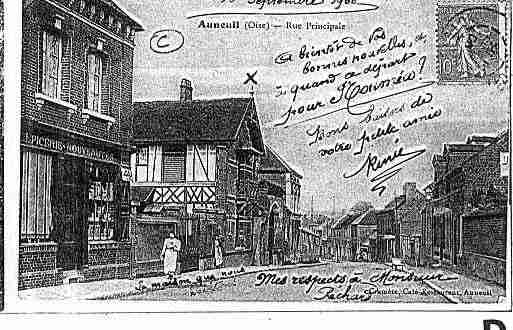 Septembre 1906
AUNEUIL (Oise) — Rue Principale
A bientôt de vos
bonnes nouvelles,
quand ce départ
pour Nouméa ?
Bons baisers de
votre petite amie
Renée
EPICERIE
La maison que nous
Mes respects à Monsieur
Café-Restaurant, Auneuil